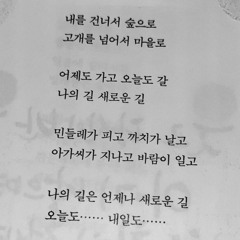 내를 건너서 숲으로
고개를 넘어서 마을로
어제도 가고 오늘도 갈
나의 길 새로운 길
민들레가 피고 까치가 날고
아가씨가 지나고 바람이 일고
나의 길은 언제나 새로운 길
오늘도…… 내일도……